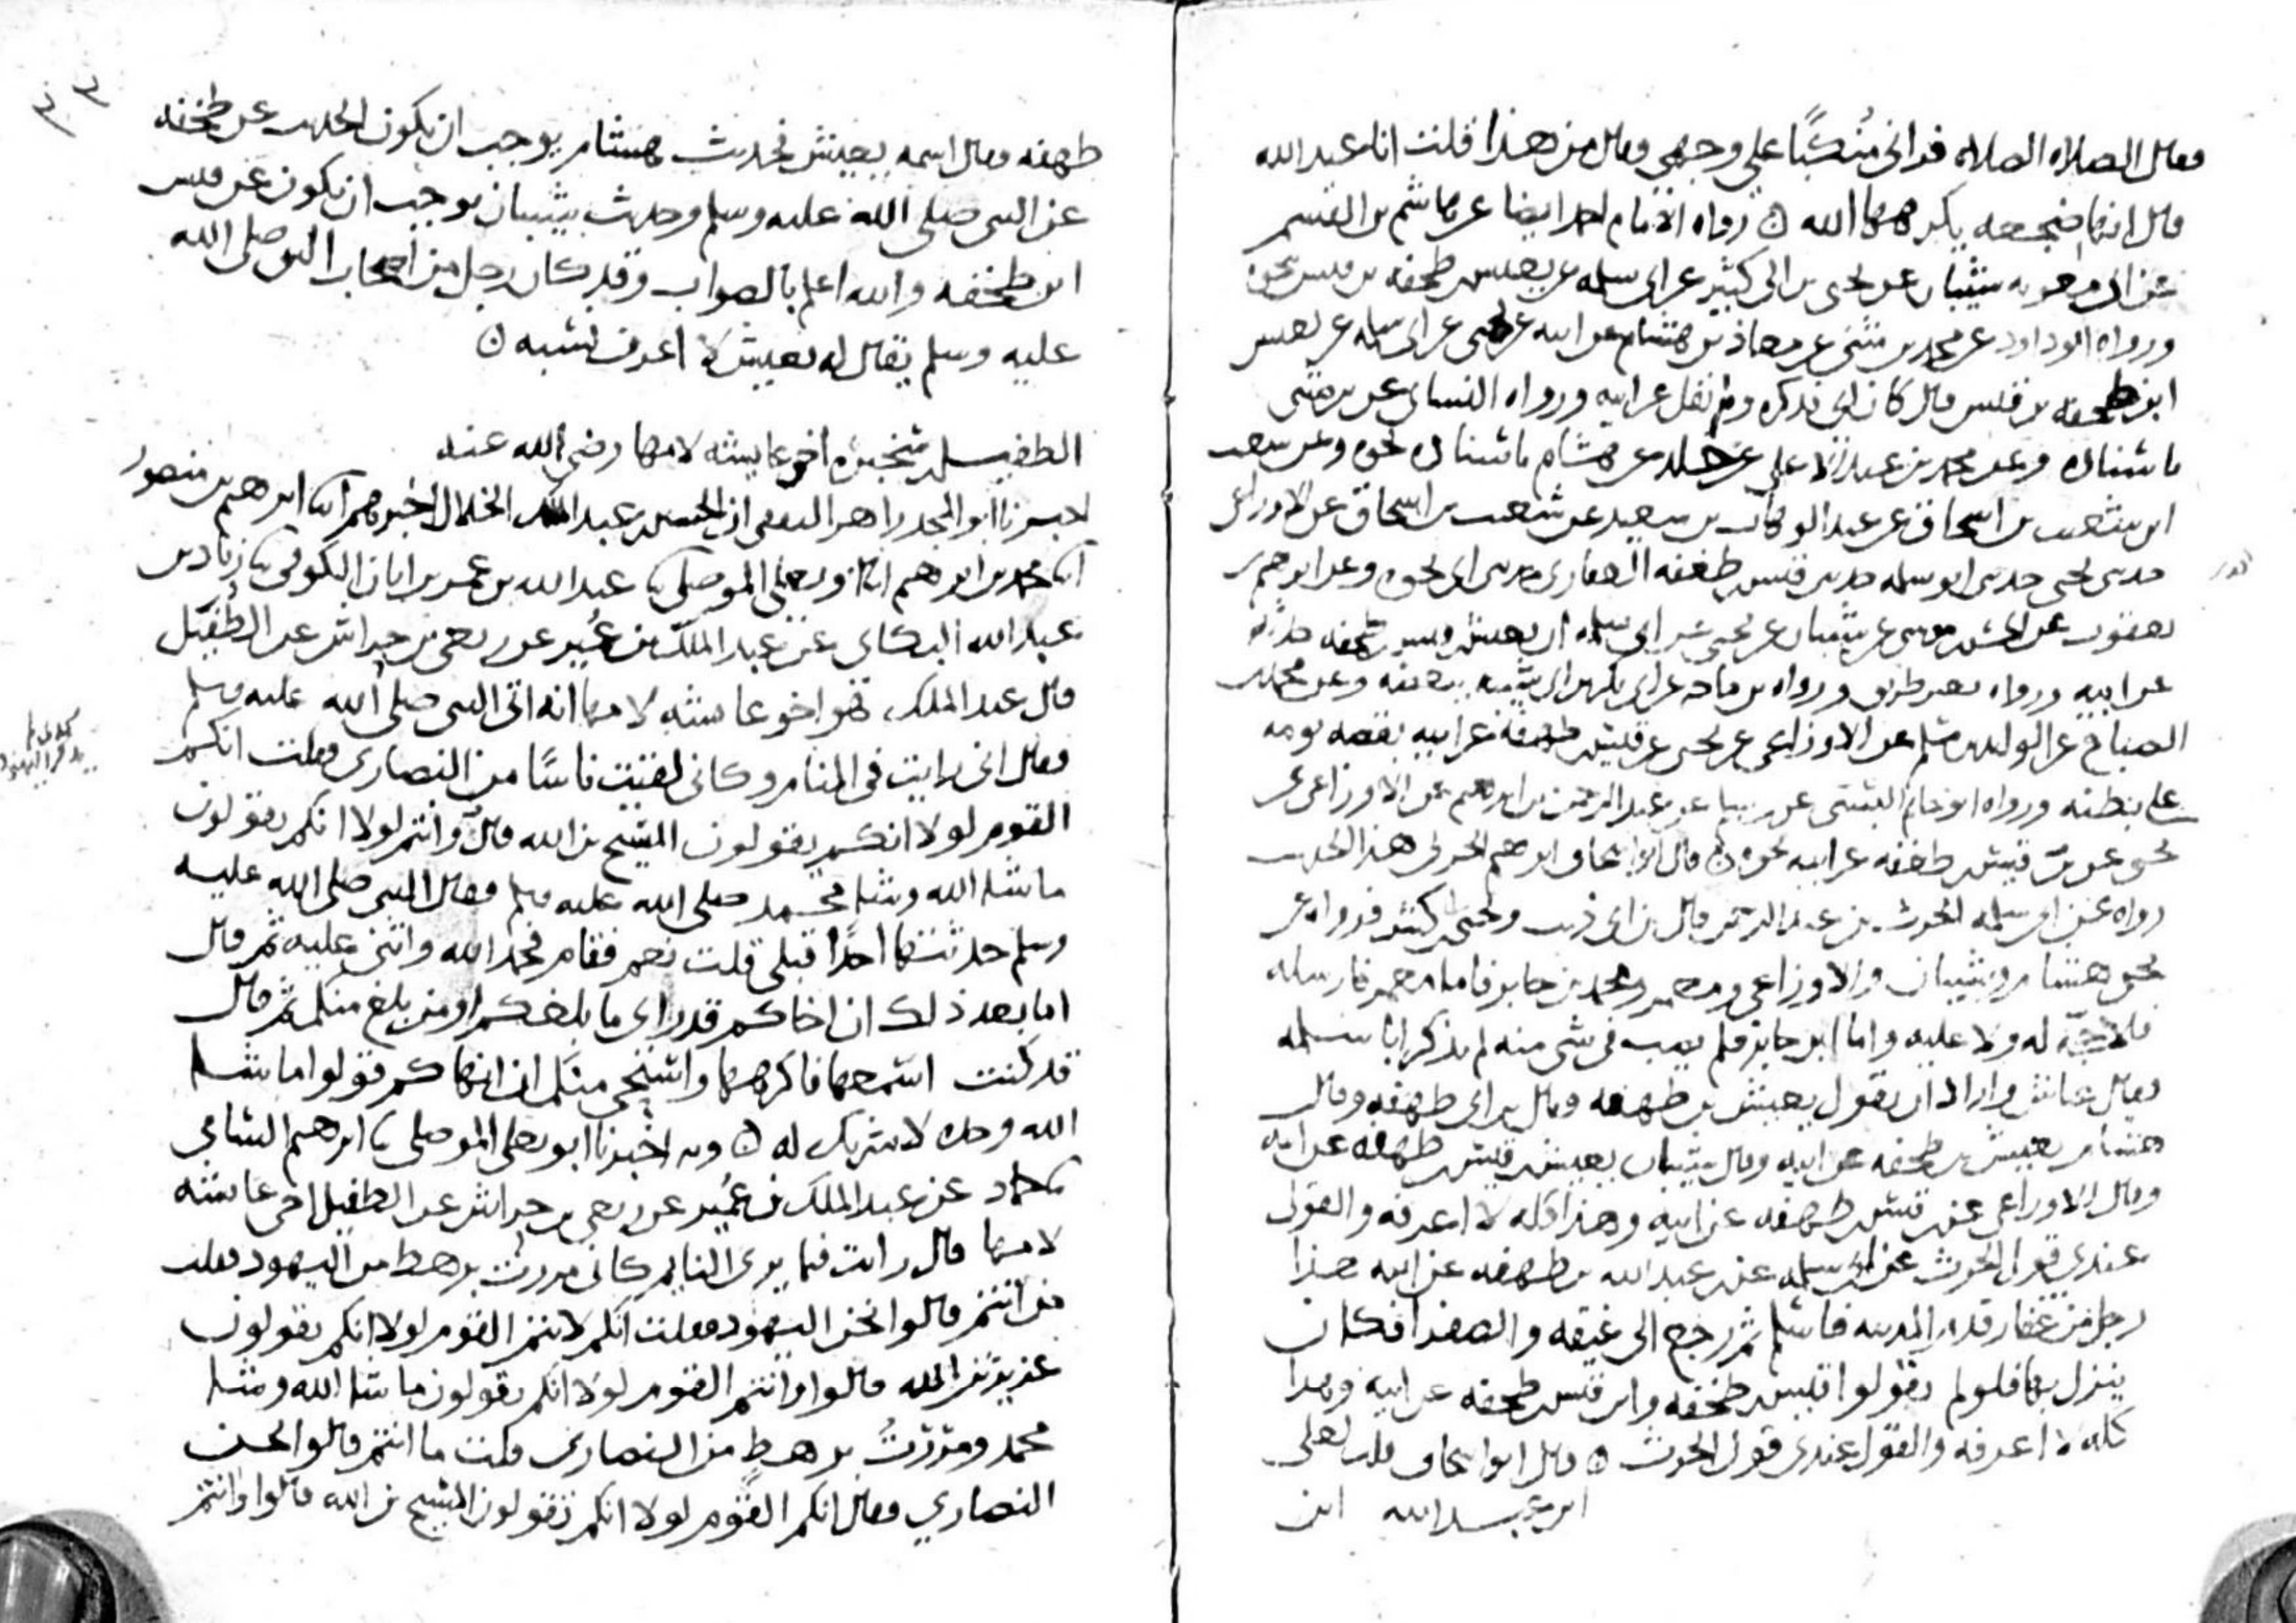 فقال الصلاه الصلاه فراني منكبًا على وجهي فقال من هذا قلت انا عبد الله
قال انها ضجعه يكرهها الله ٥ رواه الامام احمد ايضا عن هاشم بن القسم
عن ابي معويه شيبان عن يحيى بن ابي كثير عن ابي سلمه عن يعيش بن طخفه بن قيس نحوه
ورواه ابو داود عن محمد بن مثنى عن معاذ بن هشام عن ابيه عن يحيى عن ابي سلمه عن يعيش
ابن طخفه بن قيس قال كان ابي فذكره ولم يقل عن ابيه ورواه النسائي عن بن مثنى
باسناده وعن محمد بن عبد الاعلى عن خلد عن هشام باسناده نحوه وعن شعيب
ابن شعيب بن اسحاق عن عبد الوهاب بن سعيد عن شعيب بن اسحاق عن الاوزاعي
حدثني يحيى حدثني ابو سلمه حدثني قيس بن طغفه الغفاري حدثني ابي نحوه وعن ابرهيم بن
يعقوب عن الحسن بن موسى عن شيبان عن يحيى عن ابي سلمه ان يعيش بن قيس بن طخفه حدثه
عن ابيه ورواه بغير طريق ورواه بن ماجه عن ابي بكر بن ابي شيبه ببعضه وعن محمد بن
الصباح عن الوليد بن مسلم عن الاوزاعي عن يحيى عن قيس بن طهفه عن ابيه بقصه نومه
على بطنه ورواه ابو حاتم البستي عن عبد الرحمن بن ابرهيم عن الاوزاعي عن
يحيى عن بن قيس بن طغفه عن ابيه نحوه ٥ قال ابو اسحاق ابرهيم الحربي هذا الحديث
رواه عن ابي سلمه الحرث بن عبد الرحمن خال بن ابي ذيب ويحيى بن كثير فرواه عن
يحيى هشام وشيبان والاوزاعي ومعمر ومحمد بن جابر فاما معمر فارسله
فلا حجه له ولا عليه واما ابن جابر فلم يصب في شي منه لم يذكر ابا سلمه
فقال عايش واراد ان يقول يعيش بن طهفه وقال يراي طهفه وقال
هشام يعيش بن طخفه عن ابيه وقال شيبان يعيش بن قيس بن طهفه عن ابيه
وقال الاوزاعي عن قيس بن طهفه عن ابيه وهذا كله لا اعرفه والقول
عندي قول الحرث عن ابي سلمه عن بن عبد الله بن طهفه عن ابيه هذا
رجل من غفار قدم المدينه فاسلم ثم رجع الى غيقه والصفرا فكان
ينزل بها فلو لم يقولوا قيس بن طخفه وابن قيس بن طخفه عن ابيه وهذا
كله لا اعرفه والقول عندي قول الحرث ٥ قال ابو اسحاق قلت لعلي
ابن عبد الله ابن
طهفه وقال اسمه يعيش فحديث هشام يوجب ان يكون الحديث عن طخفه
عن النبي صلى الله عليه وسلم وحديث شيبان يوجب ان يكون عن قيس
ابن طخفه والله اعلم بالصواب وقد كان رجل من اصحاب النبي صلى الله
عليه وسلم يقال له يعيش لا اعرف نسبه ٥
الطفيل بن سخبره اخو عايشه لامها رضي الله عنه
اخبرنا ابو المجد زاهر الثقفي ان الحسين بن عبد الملك الخلال اخبرهم ابنا ابرهيم بن منصور
ابنا محمد بن ابرهيم ابنا ابو يعلى الموصلي ثنا عبد الله بن عمر بن ابان الكوفي ثنا زياد بن
عبد الله البكاي عن عبد الملك بن عُمير عن ربعي بن حراش عن الطُفيل
قال عبد الملك هو اخو عايشه لامها انه اتى النبي صلى الله عليه وسلم
فقال اني رايت في المنام وكاني لقيت ناسًا من النصارى فقلت انكم
القوم لولا انكم يقولون المسيح بن الله قال وانتم لولا انكم يقولون
ما شا الله وشا محمد صلى الله عليه وسلم فقال النبي صلى الله عليه
وسلم حدثت بها احدًا قبلي قلت نعم فقام فحمد الله واثنى عليه ثم قال
اما بعد ذلك ان اخاكم قد راى ما بلغكم او من بلغ منكم ثم قال
قد كنت اسمعها فاكرهها واستحي منكم ان انهاكم قولوا ما شا
الله وحده لا شريك له ٥ وبه اخبرنا ابو يعلى الموصلي ثنا ابرهيم الشامي
ثنا حماد عن عبد الملك بن عُمير عن ربعي بن حراش عن الطفيل اخي عايشه
لامها قال رايت فيما يرى النايم كاني مررت برهط من اليهود فقلت
من انتم قالوا نحن اليهود فقلت انكم لانتم القوم لولا انكم يقولون
عزير بن الله قالوا وانتم القوم لولا انكم يقولون ما شا الله وشا
محمد ومررتُ برهطٍ من النصارى قلت ما انتم قالوا نحن
النصاري فقال انكم القوم لولا انكم تقولون المسيح بن الله قالوا وانتم